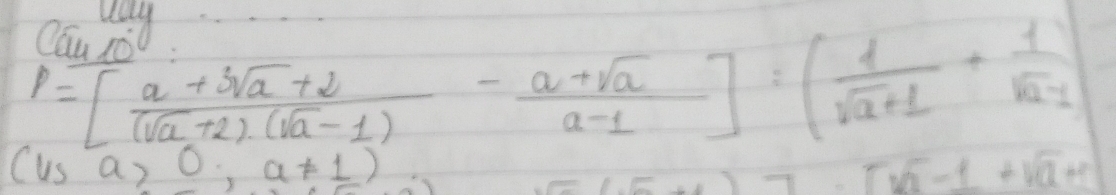 Vậy .....
Câu 10:
P = [ (a + 3√a + 2) / ((√a + 2).(√a - 1)) - (a + √a) / (a - 1) ] : ( 1 / (√a + 1) + 1 / (√a - 1)
(Vs a > 0 ; a ≠ 1).
[ √a - 1 + √a +